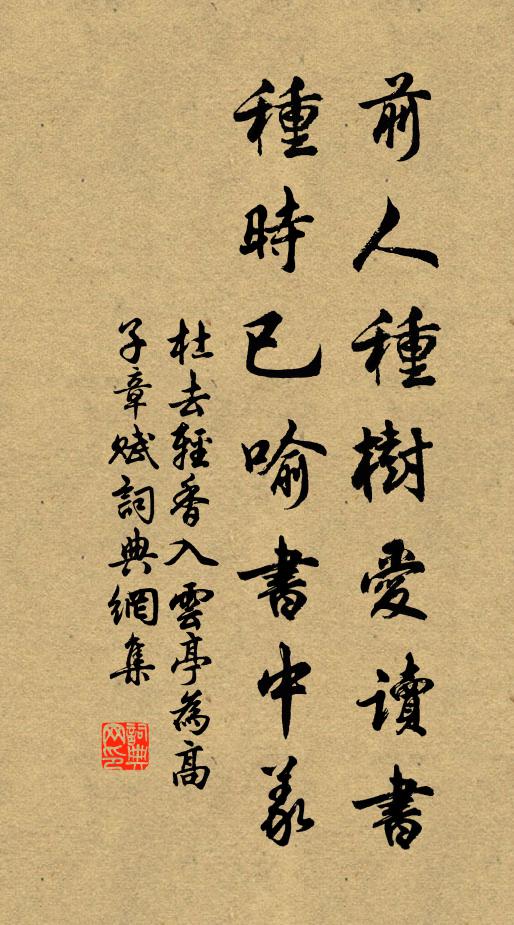 前人種樹愛讀書
種時已喻書中義
杜去輕香入雲亭為高
子章賦詞典網集
詞典
网印